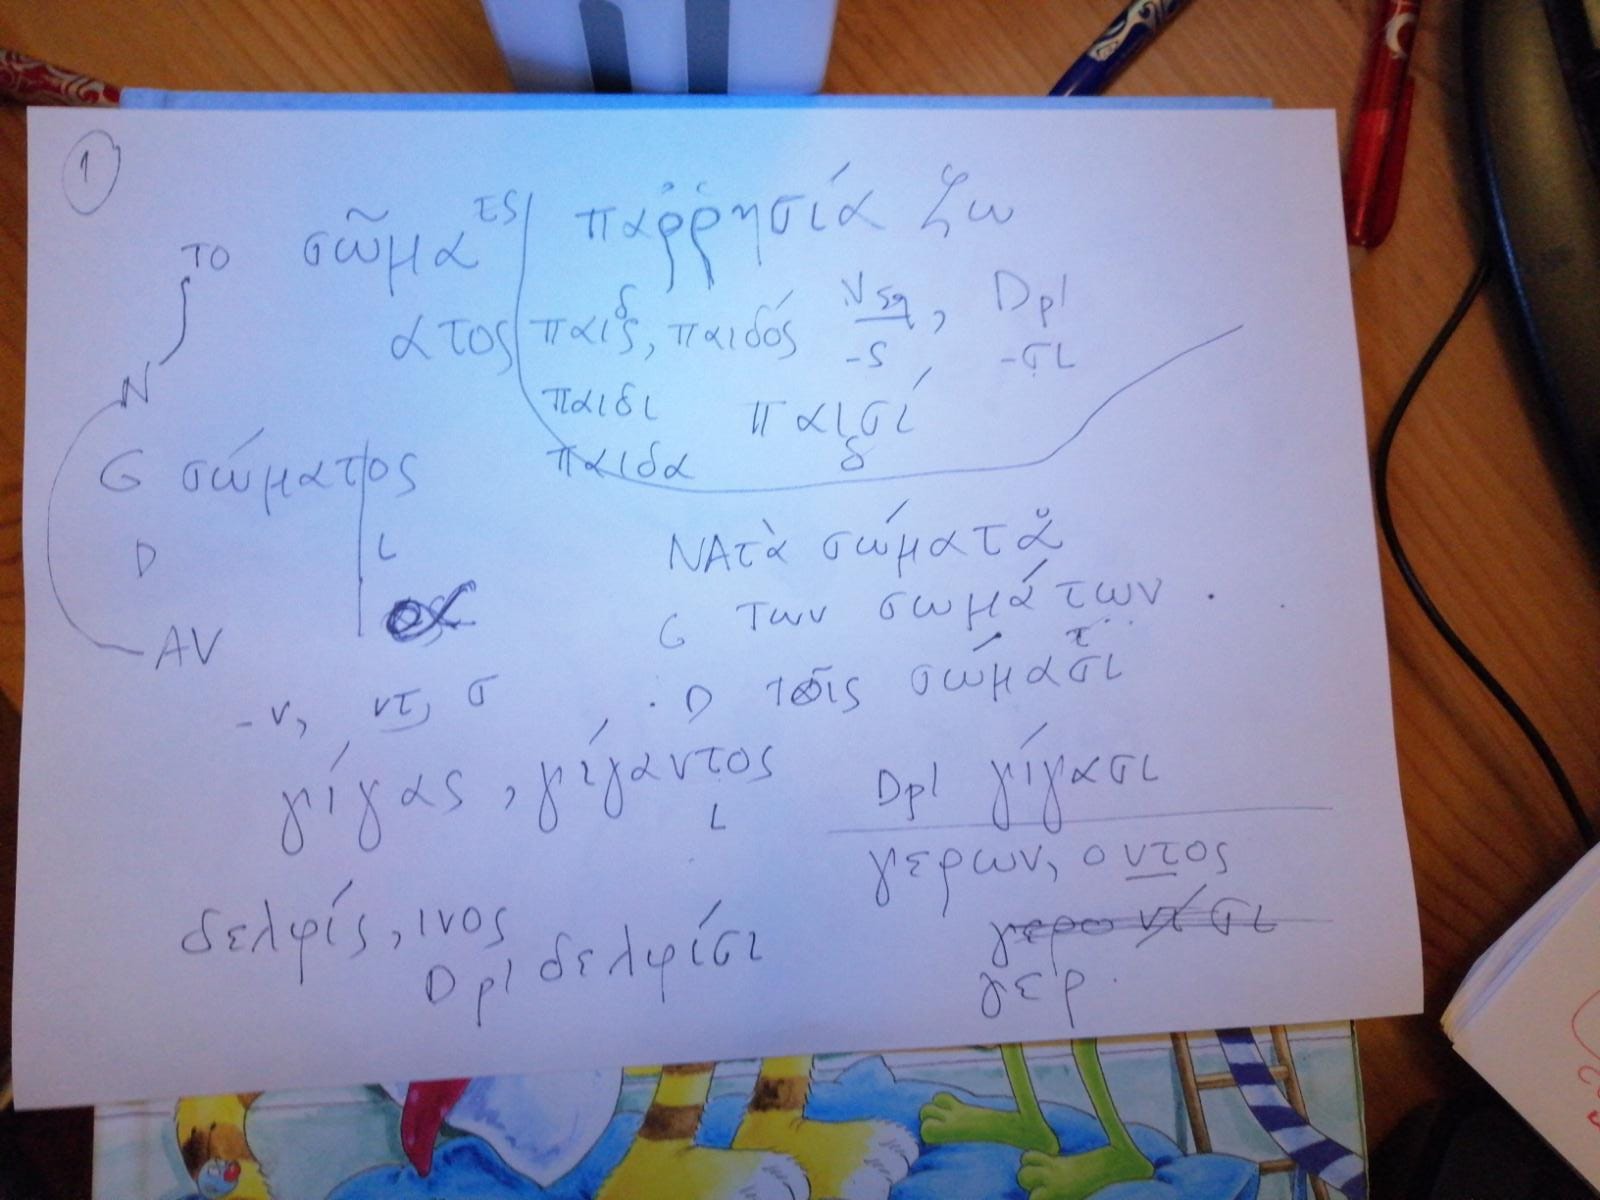 1
το σῶμα τς
ατος
παῤῥησιά ζω
παις, παιδός Nsg, Dpl
δ
-ς -σι
παιδι παισί
δ
παιδα
N
G σώματος
D ι
AV
NAτὰ σώματᾰ
G των σωμάτων .
τ
. D τοῖς σώμασι
-ν, ντ, σ
γίγας, γίγαντος
ι
Dpl γίγασι
γερων, οντος
γεροντσι
γερ.
δελφίς, ινος
Dpl δελφίσι